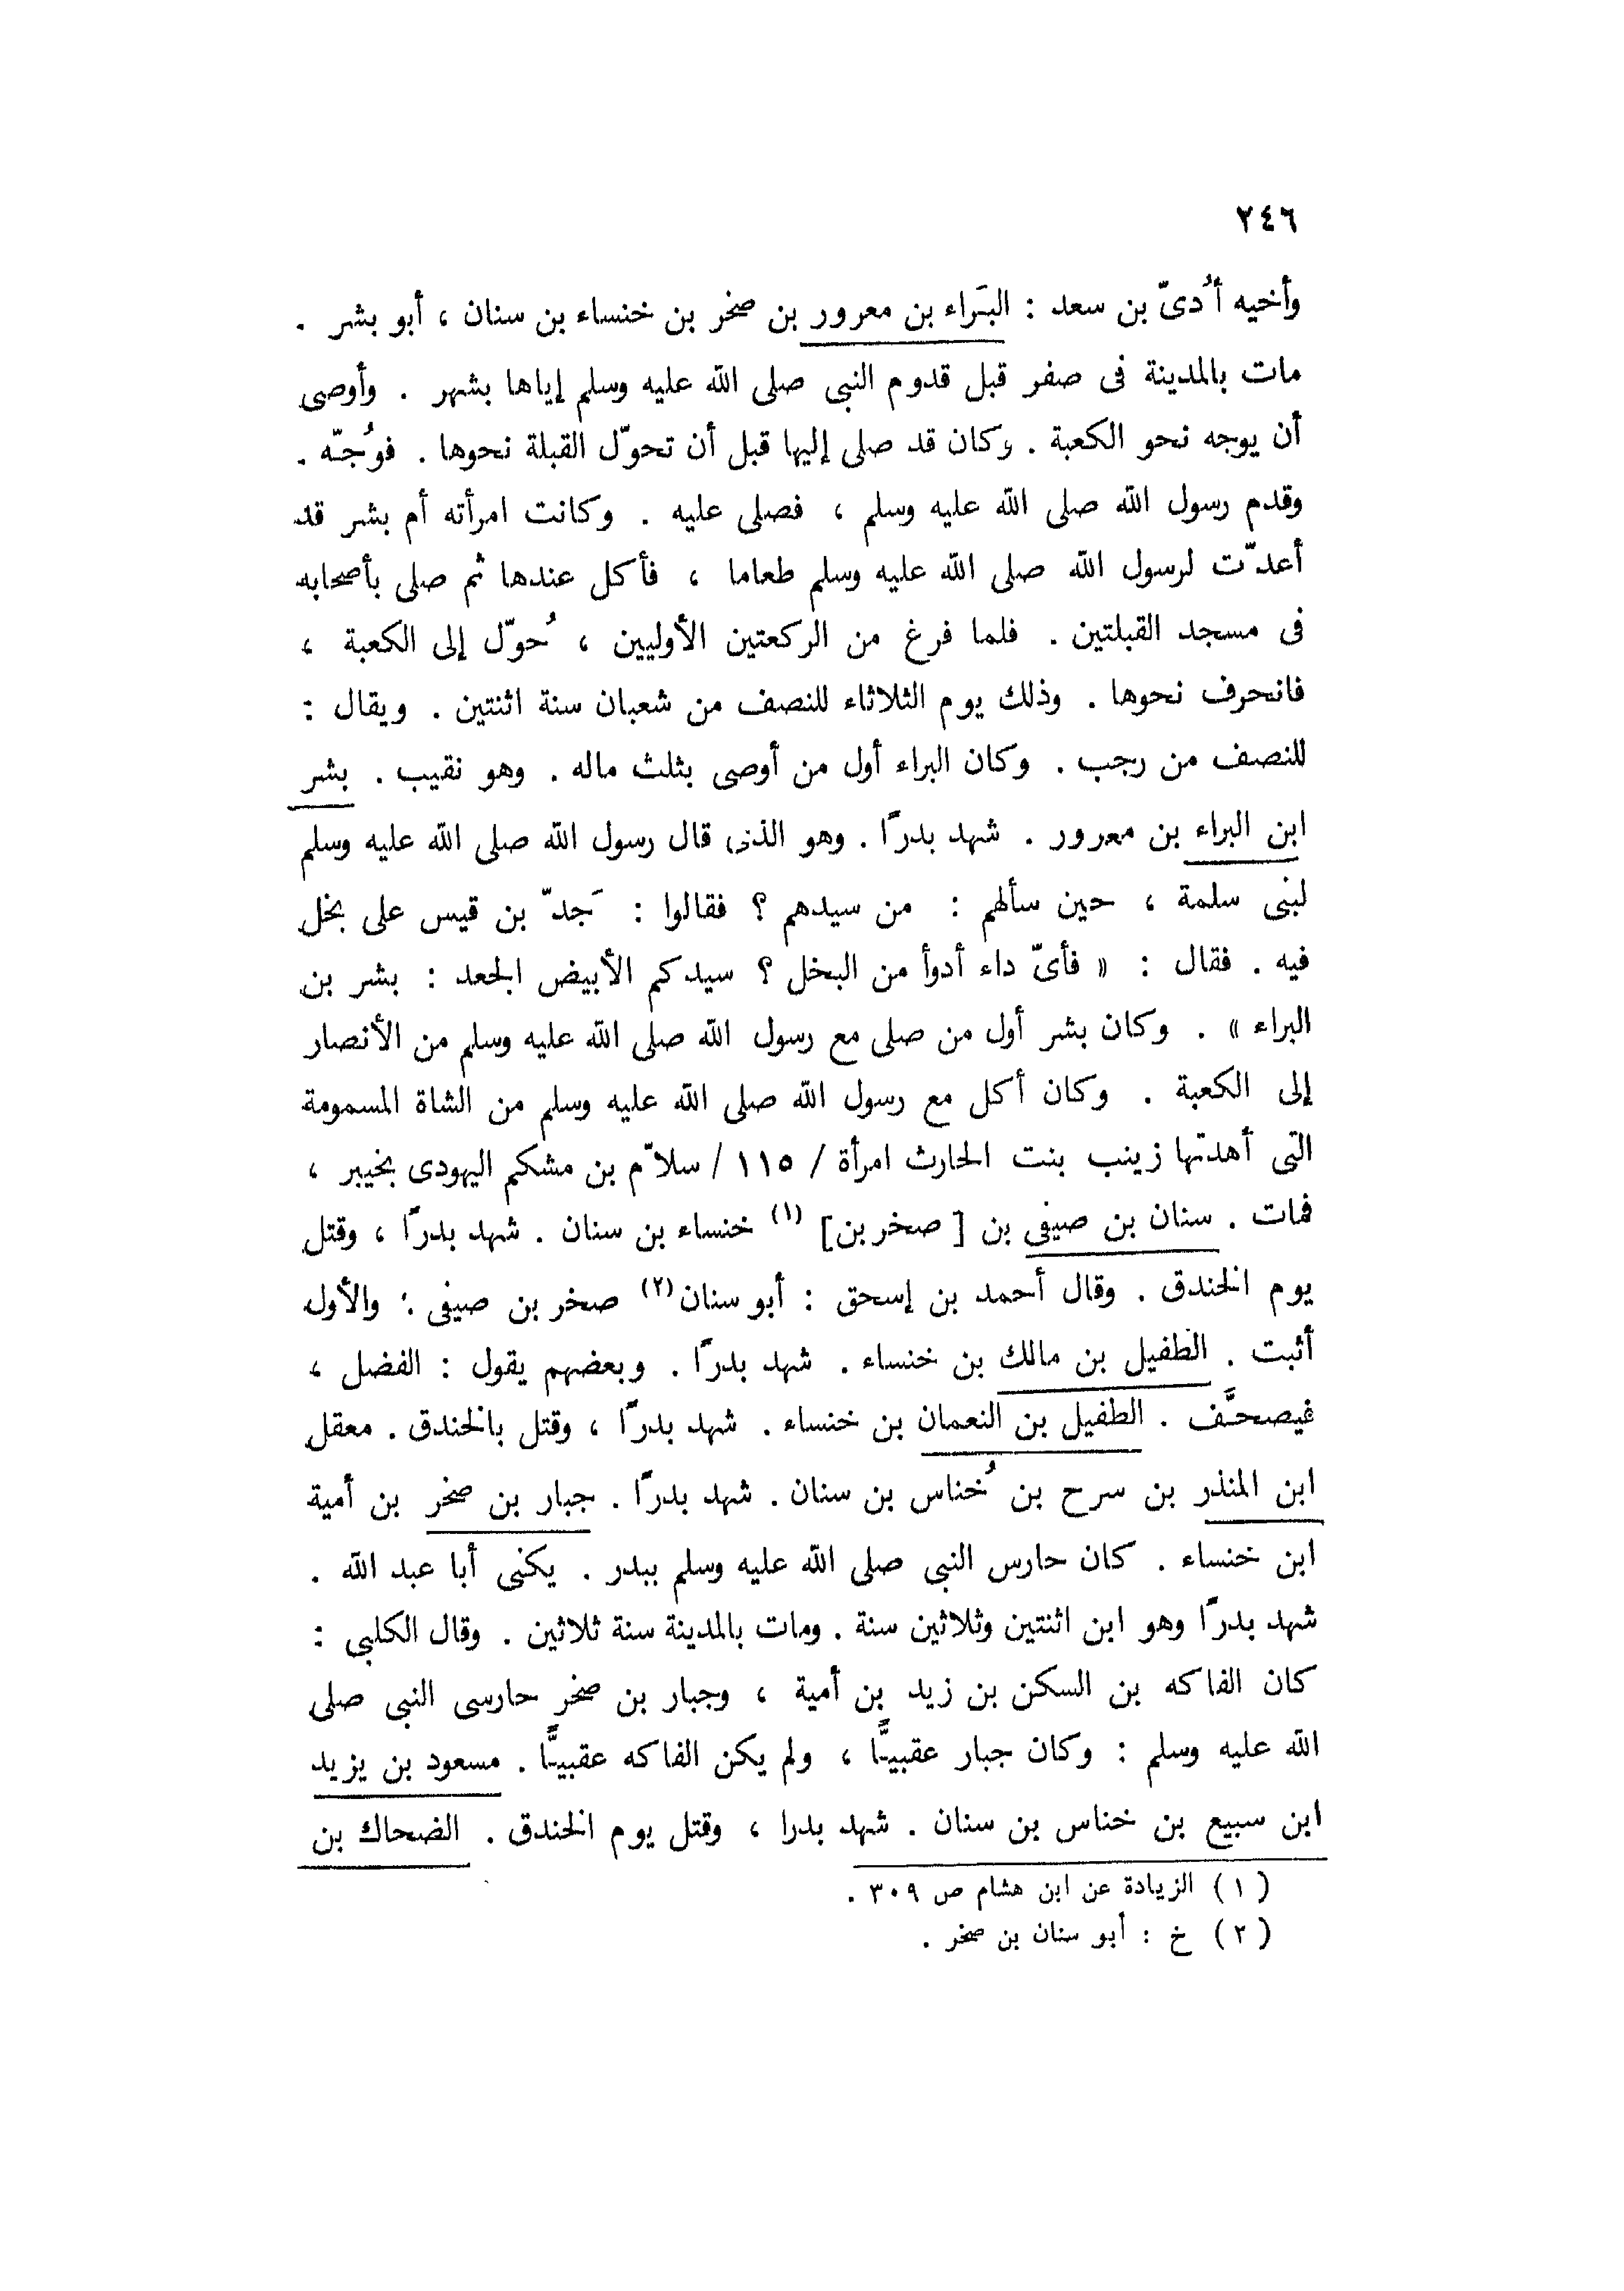 ٢٤٦
وأخيه أُدىّ بن سعد : البَراء بن معرور بن صخر بن خنساء بن سنان ، أبو بشر .
مات بالمدينة فى صفر قبل قدوم النبى صلى الله عليه وسلم إياها بشهر . وأوصى
أن يوجه نحو الكعبة . وكان قد صلى إليها قبل أن تحوّل القبلة نحوها . فوُجّه .
وقدم رسول الله صلى الله عليه وسلم ، فصلى عليه . وكانت امرأته أم بشر قد
أعدّت لرسول الله صلى الله عليه وسلم طعاما ، فأكل عندها ثم صلى بأصحابه
فى مسجد القبلتين . فلما فرغ من الركعتين الأوليين ، حُوّل إلى الكعبة ،
فانحرف نحوها . وذلك يوم الثلاثاء للنصف من شعبان سنة اثنتين . ويقال :
للنصف من رجب . وكان البراء أول من أوصى بثلث ماله . وهو نقيب . بشر
ابن البراء بن معرور . شهد بدرًا . وهو الذى قال رسول الله صلى الله عليه وسلم
لبنى سلمة ، حين سألهم : من سيدهم ؟ فقالوا : جَدّ بن قيس على بخل
فيه . فقال : « فأىّ داء أدوأ من البخل ؟ سيدكم الأبيض الجعد : بشر بن
البراء » . وكان بشر أول من صلى مع رسول الله صلى الله عليه وسلم من الأنصار
إلى الكعبة . وكان أكل مع رسول الله صلى الله عليه وسلم من الشاة المسمومة
التى أهدتها زينب بنت الحارث امرأة / ١١٥ / سلاّم بن مشكم اليهودى بخيبر ،
فمات . سنان بن صيفى بن [ صخر بن] (١) خنساء بن سنان . شهد بدرًا ، وقتل
يوم الخندق . وقال أحمد بن إسحق : أبو سنان (٢) صخر بن صيفى ؛ والأول
أثبت . الطفيل بن مالك بن خنساء . شهد بدرًا . وبعضهم يقول : الفضل ،
فيصحَّف . الطفيل بن النعمان بن خنساء . شهد بدرًا ، وقتل بالخندق . معقل
ابن المنذر بن سرح بن خُناس بن سنان . شهد بدرًا . جبار بن صخر بن أمية
ابن خنساء . كان حارس النبى صلى الله عليه وسلم ببدر . يكنى أبا عبد الله .
شهد بدرًا وهو ابن اثنتين وثلاثين سنة . ومات بالمدينة سنة ثلاثين . وقال الكلبى :
كان الفاكه بن السكن بن زيد بن أمية ، وجبار بن صخر حارسى النبى صلى
الله عليه وسلم : وكان جبار عقبيًّا ، ولم يكن الفاكه عقبيًّا . مسعود بن يزيد
ابن سبيع بن خناس بن سنان . شهد بدرا ، وقتل يوم الخندق . الضحاك بن
( ١ ) الزيادة عن ابن هشام ص ٣٠٩ .
( ٢ ) خ : أبو سنان بن صخر .